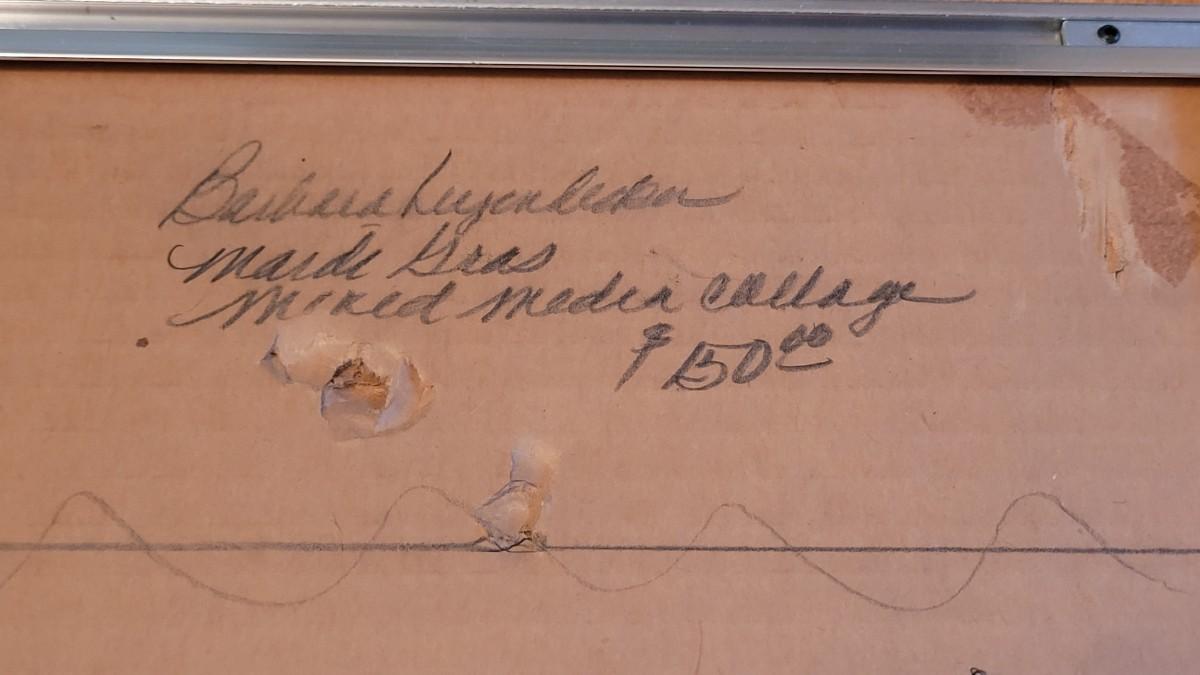 Barbara Luyenbecker
Mardi Gras
Mixed Media Collage
$ 150.00